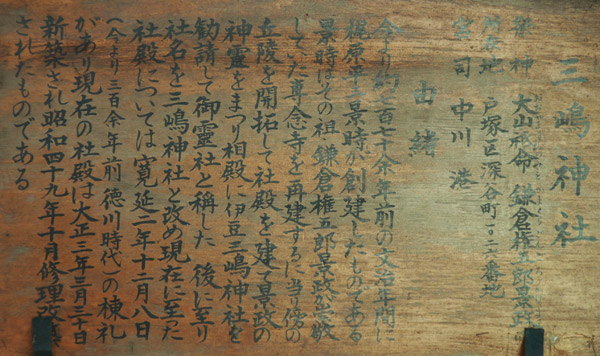 三嶋神社
祭神 大山祇命 鎌倉権五郎景政
所在地 戸塚区深谷町一〇二六番地
宮司 中川 港
由緒
今より約七百七十余年前の文治年間に
梶原平三景時が創建したものである
景時はその祖鎌倉権五郎景政が崇敬
していた専念寺を再建するに当り傍の
丘陵を開拓して社殿を建て景政の
神霊をまつり相殿に伊豆三嶋神社を
勧請して御霊社と称した 後に至り
社名を三嶋神社と改め現在に至った
社殿については寛延二年十二月八日
(今より二百余年前 徳川時代)の棟札
があり現在の社殿は大正三年三月三十日
新築され昭和四十九年十月修理改
されたものである